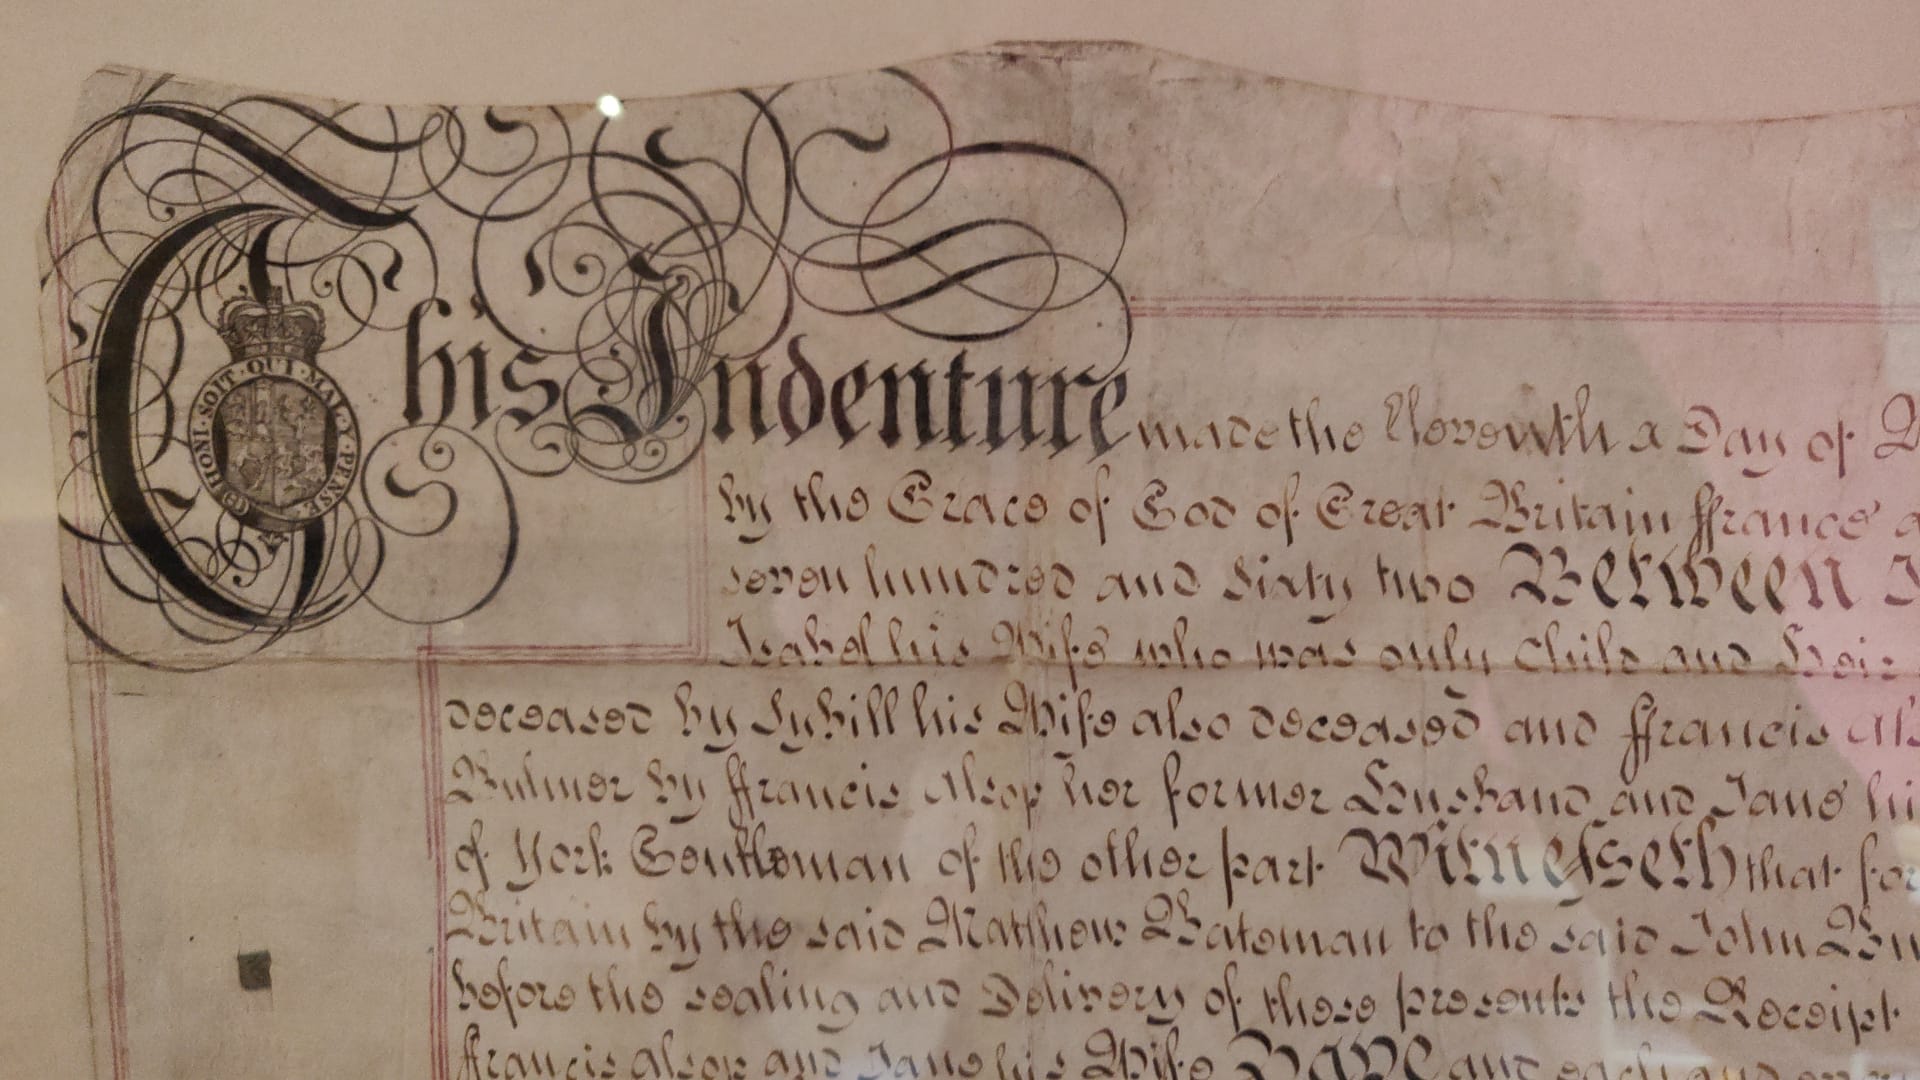 HONI·SOIT·QUI·MAL·Y·PENSE
This Indenture made the Eleventh Day of
by the Grace of God of Great Britain ffrance
seven hundred and Sixty two Between
Isabel his Wife who was only Child and Heir
deceased by Sybill his Wife also deceased and ffrancis
Bulmer by ffrancis Alsop her former Husband and Jane
of York Gentleman of the other part Witnesseth that for
Britain by the said Matthew Bateman to the said John
before the sealing and Delivery of these presents the Receipt
ffrancis Alsop and Jane his Wife HAVE and each and